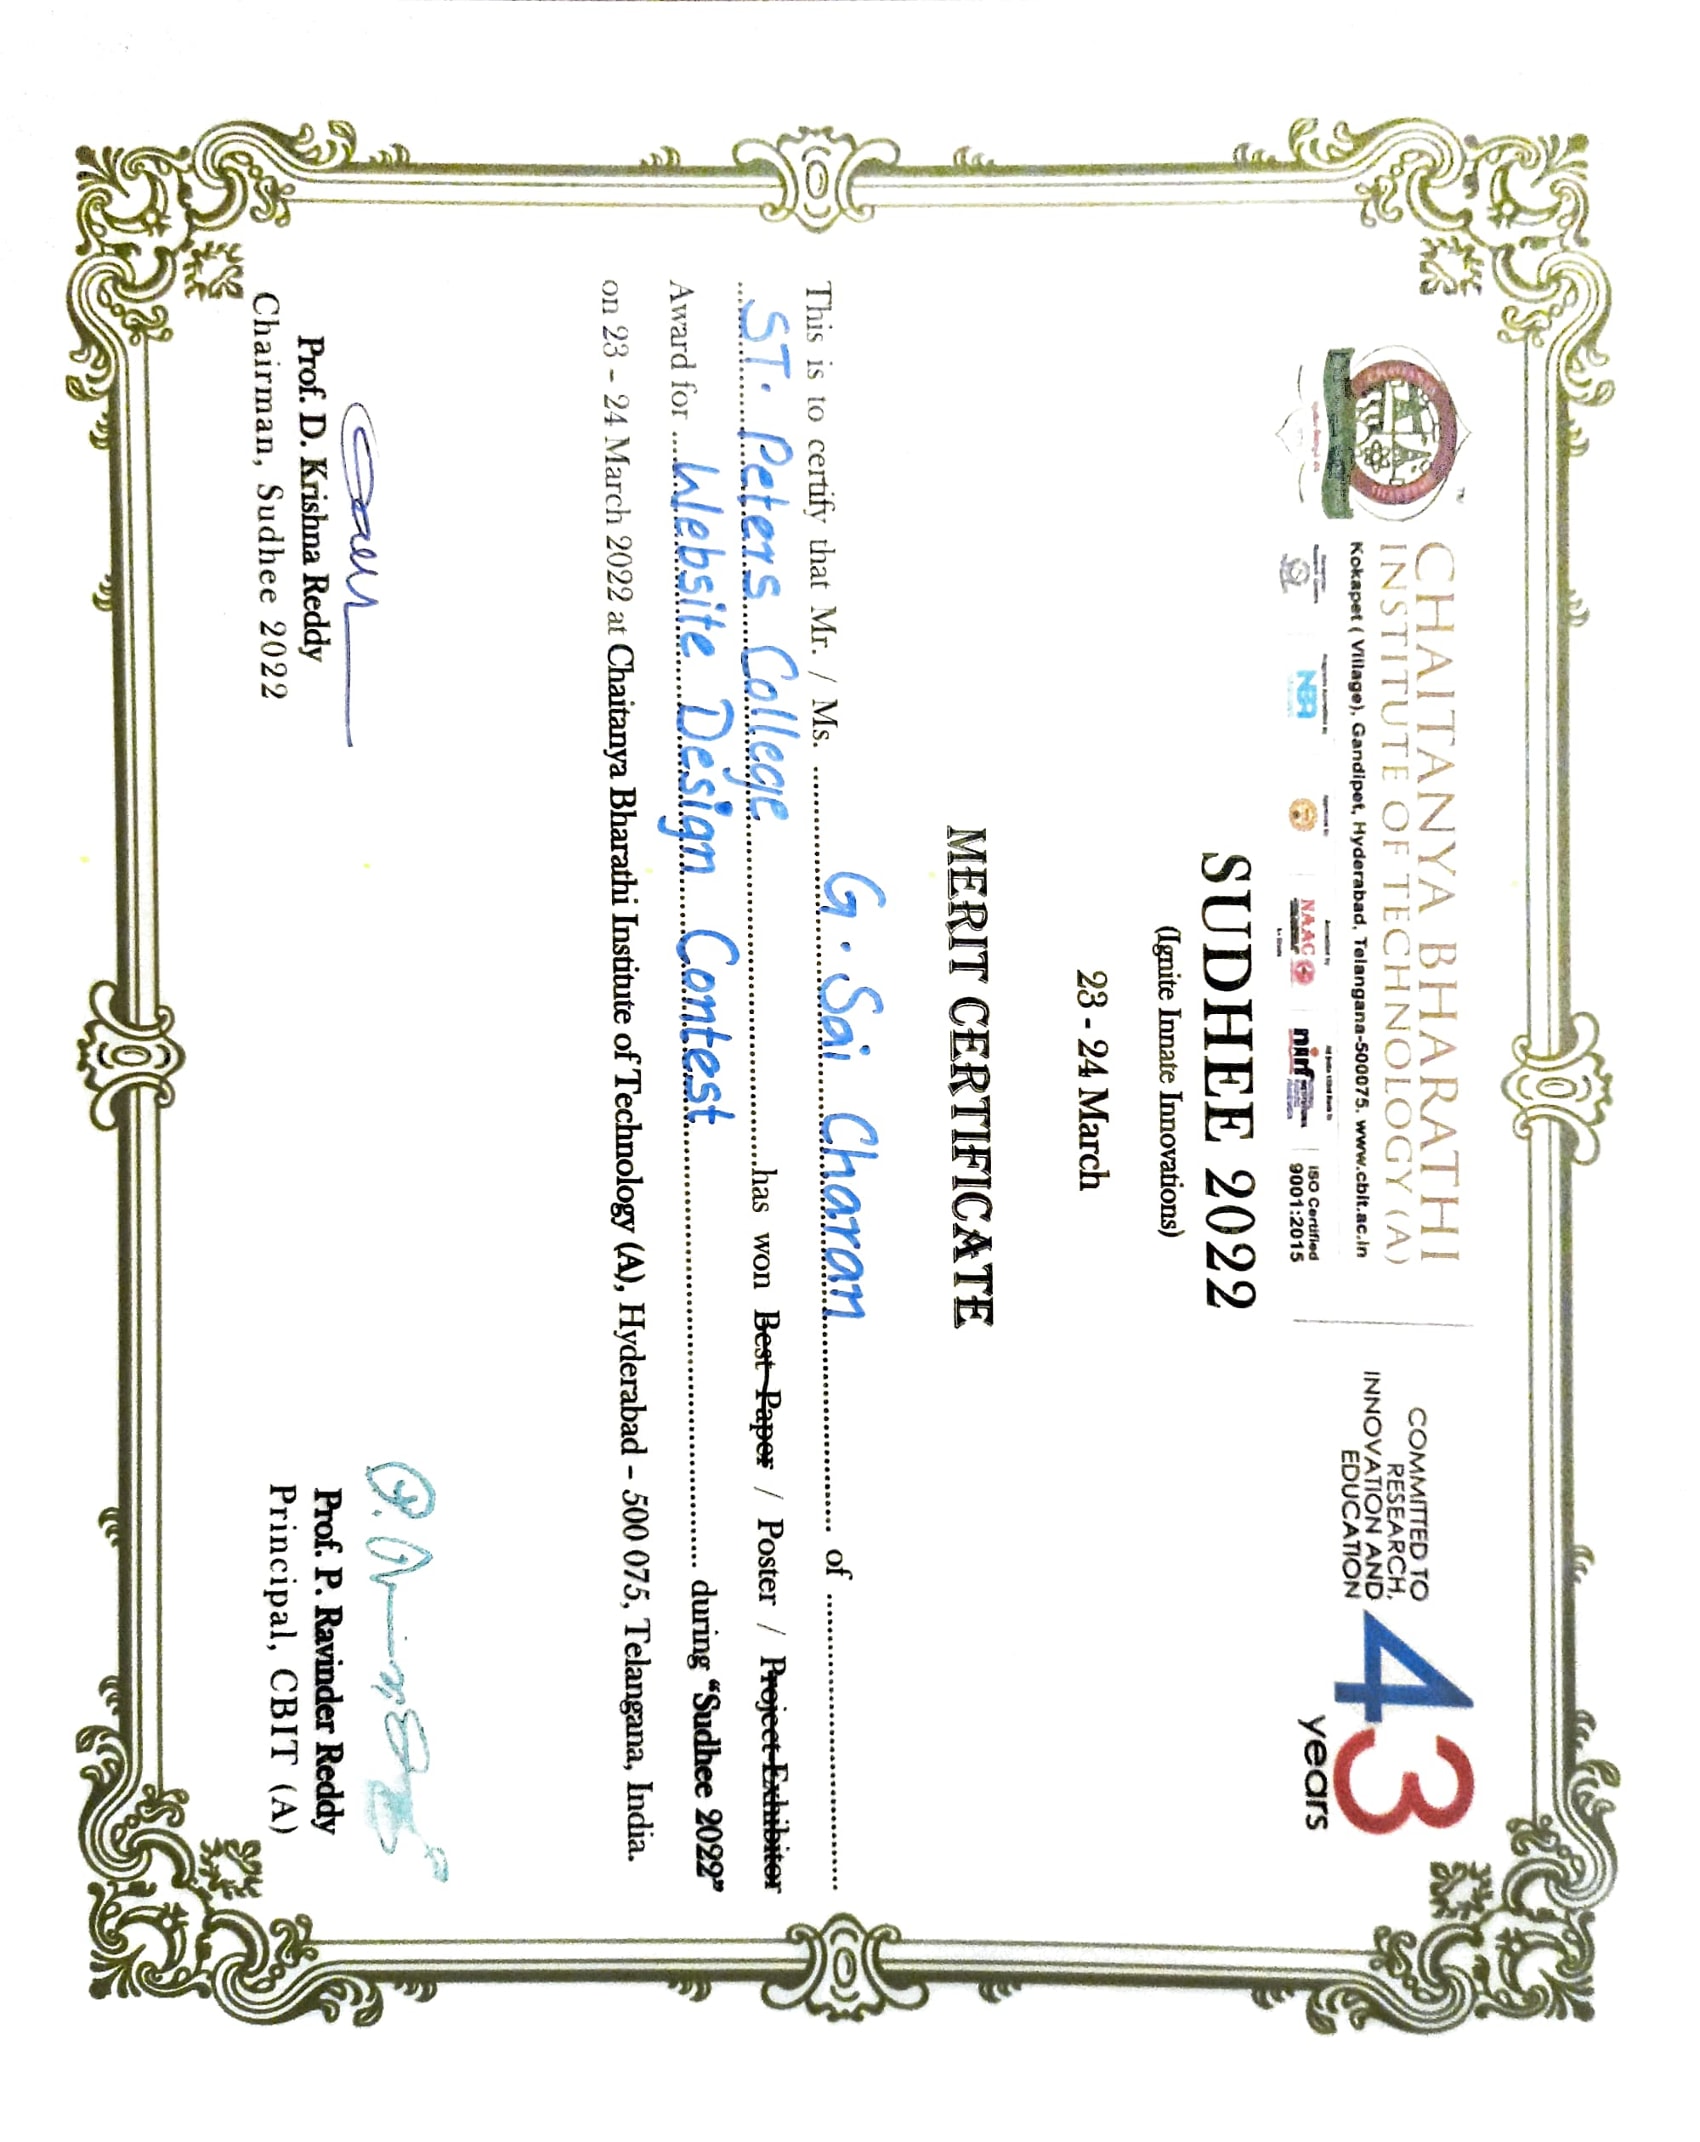 CHAITANYA BHARATHI
INSTITUTE OF TECHNOLOGY (A)
Kokapet ( Village), Gandipet, Hyderabad, Telangana-500075. www.cbit.ac.in
COMMITTED TO
RESEARCH,
INNOVATION AND
EDUCATION
43
years
TM
NBA
NAAC
nirf
ISO Certified
9001:2015
SUDHEE 2022
(Ignite Innate Innovations)
23 - 24 March
MERIT CERTIFICATE
This is to certify that Mr. / Ms. G. Sai Charan of
ST. Peters College has won Best Paper / Poster / Project Exhibitor
Award for Website Design Contest during “Sudhee 2022”
on 23 - 24 March 2022 at Chaitanya Bharathi Institute of Technology (A), Hyderabad - 500 075, Telangana, India.
Prof. D. Krishna Reddy
Chairman, Sudhee 2022
Prof. P. Ravinder Reddy
Principal, CBIT (A)